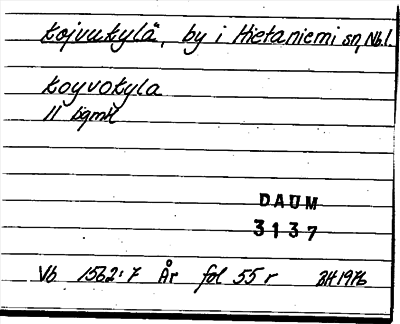 Koivukylä, by i Hietaniemi sn, Nb.l.
Koyvokyla
11 bgmil
DAUM
3137
Vb 1562:7 År fol 55 r BH 1976